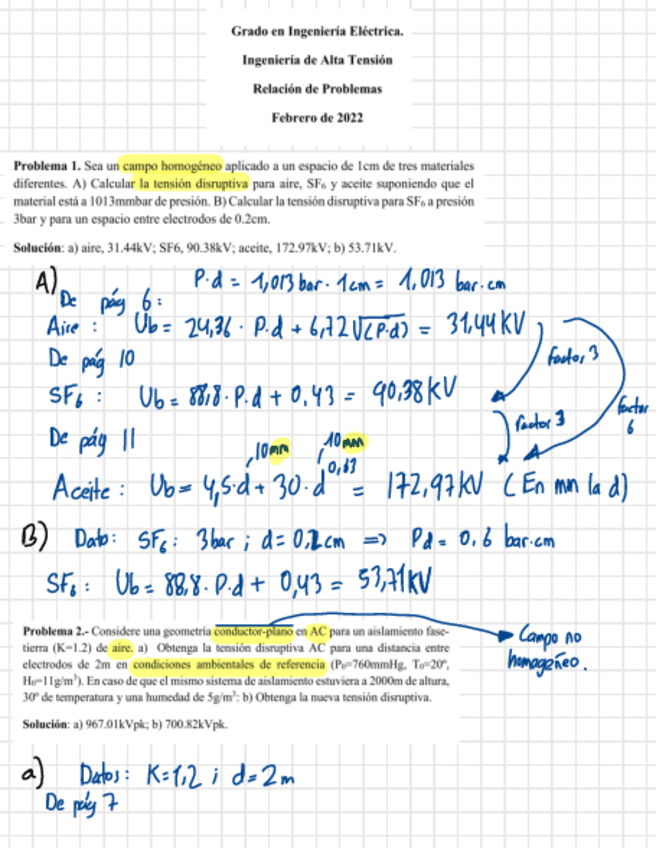 Grado en Ingeniería Eléctrica.
Ingeniería de Alta Tensión
Relación de Problemas
Febrero de 2022
Problema 1. Sea un campo homogéneo aplicado a un espacio de 1cm de tres materiales
diferentes. A) Calcular la tensión disruptiva para aire, SF₆ y aceite suponiendo que el
material está a 1013mmbar de presión. B) Calcular la tensión disruptiva para SF₆ a presión
3bar y para un espacio entre electrodos de 0.2cm.
Solución: a) aire, 31.44kV; SF6, 90.38kV; aceite, 172.97kV; b) 53.71kV.
A) P.d = 1,013 bar . 1cm = 1,013 bar.cm
De pág 6:
Aire : Ub = 24,36 . P.d + 6,72√(P.d) = 31,44 KV
factor 3
De pág 10
SF₆ : Ub = 88,8 . P.d + 0,43 = 90,38KV
factor 3
factor
6
De pág 11
10mm 10mm
Aceite : Ub = 4,5.d + 30.d^0,63 = 172,97KV (En mm la d)
B) Dato: SF₆ : 3bar ; d = 0,2cm => Pd = 0.6 bar.cm
SF₆ : Ub = 88,8 . P.d + 0,43 = 53,71KV
Problema 2.- Considere una geometría conductor-plano en AC para un aislamiento fase-
tierra (K=1.2) de aire. a) Obtenga la tensión disruptiva AC para una distancia entre
electrodos de 2m en condiciones ambientales de referencia (P₀=760mmHg, T₀=20º,
H₀=11g/m³). En caso de que el mismo sistema de aislamiento estuviera a 2000m de altura,
30º de temperatura y una humedad de 5g/m³: b) Obtenga la nueva tensión disruptiva.
Campo no
homogéneo.
Solución: a) 967.01kVpk; b) 700.82kVpk.
a) Datos: K=1,2 ; d=2m
De pág 7